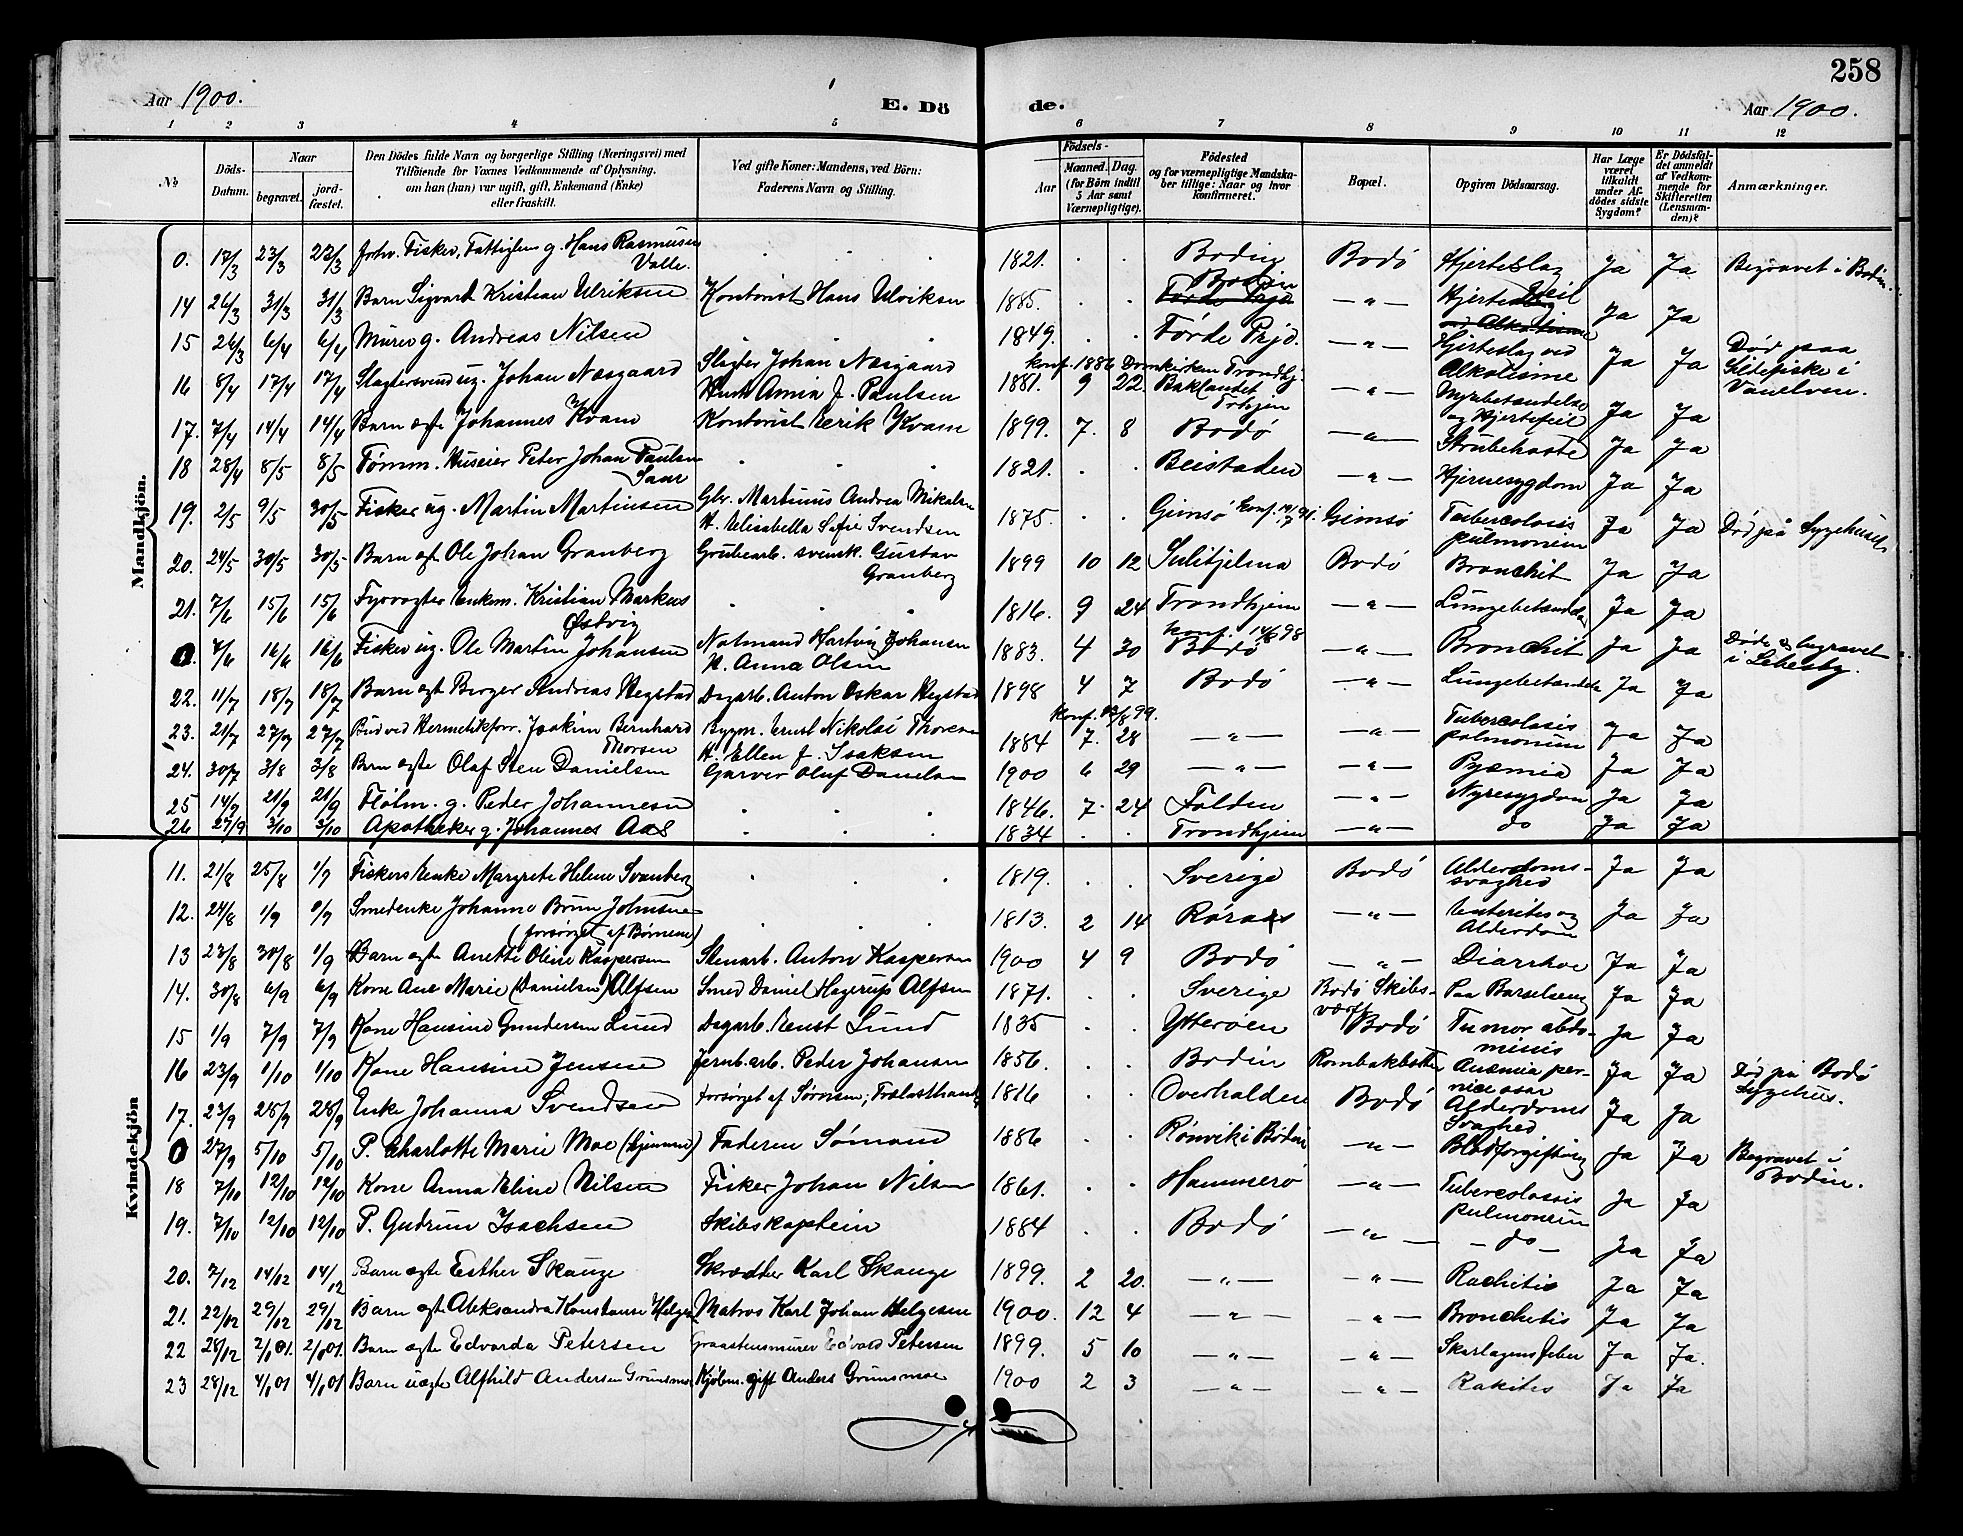 258
Aar 1900.
E. Döde.
Aar 1900.
1 2 3 4 5 6 7 8 9 10 11 12
No
Döds-Datum.
Naar
begravet.
jord-fæstet.
Den Dödes fulde Navn og borgerlige Stilling (Næringsvei) med
Tilföiende for Voxnes Vedkommende af Oplysning,
om han (hun) var ugift, gift, Enkemand (Enke)
eller fraskilt.
Ved gifte Koner: Mandens, ved Börn:
Faderens Navn og Stilling.
Födsels-
Aar
Maaned. Dag.
(for Börn indtil
5 Aar samt
Værnepligtige).
Födested
og for værnepligtige Mandska-
ber tillige: Naar og hvor
konfirmeret.
Bopæl.
Opgiven Dödsaarsag.
Har Læge
været
tilkaldt
under Af-
dödes sidste
Sygdom?
Er Dödsfal-
det anmeldt
af Vedkom-
mende for
Skifteretten
(Lensman-
den)?
Anmærkninger.
Mandkjön.
0. 17/3 23/3 23/3 Forhv. Fisker, Fattiglem g. Hans Rasmussen Valle. 1821. Bodin Bodö Hjerteslag Ja Ja Begravet i Bodin.
14 26/3 31/3 31/3 Barn Sigvard Kristian Ulriksen Kontorist Hans Ulriksen 1885. Bodin — " — Hjertefeil Ja Ja
15 26/3 6/4 6/4 Murer g. Andreas Nilsen 1849. Förde Prjd. — " — Hjerteslag ved Alkolisme Ja Ja Död paa Sildefiske i Vanelven.
16 8/4 17/4 17/4 Slagtersvend ug. Johan Næsgaard Slagter Johan Næsgaard Hust. Anna f. Paulsen konf. 1886 Domkirken Trondhj. 1881. 9 22. Baklandet Trhjem — " — Nyrebetændelse og Hjertefeil Ja Ja
17. 7/4 14/4 14/4 Barn ægte Johannes Kvam Kontorist Erik Kvam 1899. 7. 8 Bodö — " — Strubehoste Ja Ja
18 28/4 8/5 8/5 Tömm. Huseier Peter Johan Paulsen Saar 1821. Beistaden — " — Hjernesygdom Ja Ja
19. 2/5 9/5 30/5 Fisker ug. Martin Martinsen Gbr. Martinus Andrea Mikalsen H. Elisabella Sofie Svendsen 1875. Gimsö Gimsö Tubercolosis pulmonium Ja Ja Död på Sygehuset
20. 24/5 30/5 30/5 Barn ægt Ole Johan Granberg Grubearb. svensk. Gustav Granberg 1899 10 12 Sulitjelma Bodö Bronchit Ja Ja
21. 7/6 15/6 15/6 Fyrvogter Enkem. Kristian Markus Östvig 1816. 9 24 Trondhjem — " — Lungebetændelse Ja Ja
0. 7/6 16/6 16/6 Fisker ug. Ole Martin Johansen Notmand Hartvig Johansen H. Anna Olsen 1883. 4 30 konf. 14/6 98 Bodö — " — Bronchit Ja Ja Döde og begravet i Lebesby.
22. 11/7 18/7 18/7 Barn ægt Birger Andreas Hegstad Dagarb. Anton Oskar Hegstad 1898 4 7 Bodö — " — Lungebetændelse Ja Ja
23. 21/7 27/7 27/7 Bud ved Hermetikforr. Joakim Bernhard Thorsen Bygm. Ernst Nikolai Thorsen H. Ellen f. Isaksen 1884 7. 28 — " — — " — Tubercolosis pulmonium Ja Ja
24. 30/7 3/8 3/8 Barn ægte Olaf Sten Danielsen Garver Oluf Danielsen 1900 6 29 — " — — " — Pyæmia Ja Ja
25 14/9 21/9 21/9 Flötm. g. Peder Johannesen 1846. 7. 24 Folden — " — Nyresygdom Ja Ja
26 27/9 3/10 3/10 Apotheker g. Johannes Aas 1834 Trondhjem — " — do Ja Ja
Kvindekjön
11. 21/8 25/8 1/9 Fiskers Enke Margrete Helene Svanberg 1819. Sverige Bodö Alderdoms-svaghed Ja Ja
12. 24/8 1/9 1/9 Smedenke Johanne Bruun Johnsen (forsörget af Börnene) 1813. 2 14 Röraas — " — Enterites og Alderdom Ja Ja
13 23/8 30/8 1/9 Barn ægte Anette Oline Kaspersen Stenarb. Anton Kaspersen 1900 4 9 Bodö — " — Diarrhoe Ja Ja
14. 30/8 6/9 6/9 Kone Ane Marie (Danielsen) Alfsen Smed Daniel Hagerup Alfsen 1871. Sverige Bodö Skibs-værft Paa Barselseng Ja Ja
15 1/9 7/9 7/9 Kone Hansine Gundersen Lund Dagarb. Ernst Lund 1835 Ytteröen Bodö Tumor abdo-minis Ja Ja
16 23/9 1/10 1/10 Kone Hansine Jensen Jernb.arb. Peder Johansen 1856. Bodin Rombaksbotten Anæmia per-niceosaa Ja Ja Död på Bodö Sygehus.
17. 23/9 28/9 28/9 Enke Johanna Svendsen Forsörget af Sönnen, Trælasthandl. 1816 Overhalden Bodö Alderdoms Svaghed Ja Ja
0 27/9 5/10 5/10 P. Charlotte Marie Moe (hjemme) Faderen Sömand 1886 Rönvik i Bodin — " — Blodforgiftning Ja Ja Begravet i Bodin.
18 7/10 12/10 12/10 Kone Anna Eline Nilsen Fisker Johan Nilsen 1861. Hammerö — " — Tubercolosis pulmonium Ja Ja
19. 7/10 12/10 12/10 P. Gudrun Isachsen Skibskaptein 1884 Bodö — " — — do — Ja Ja
20. 7/12 14/12 14/12 Barn ægte Esther Skauge Skrædder Karl Skauge 1899. 2 20. — " — — " — Rachitis Ja Ja
21. 22/12 29/12 29/12 Barn ægt Aleksandra Konstanse Helgesen Matros Karl Johan Helgesen 1900. 12 4 — " — — " — Bronchitis Ja Ja
22 28/12 2/1 01. 2/1 01. Barn ægte Edvarda Petersen Graastensmurer Edvard Petersen 1899. 5 10 — " — — " — Skarlagensfeber Ja Ja.
23 28/12 4/1 01 4/1 01 Barn uægte Alfhild Andersen Grunsmoe Kjöbm. gift Anders Grunsmoe 1900 2 3 — " — — " — Rakites Ja Ja